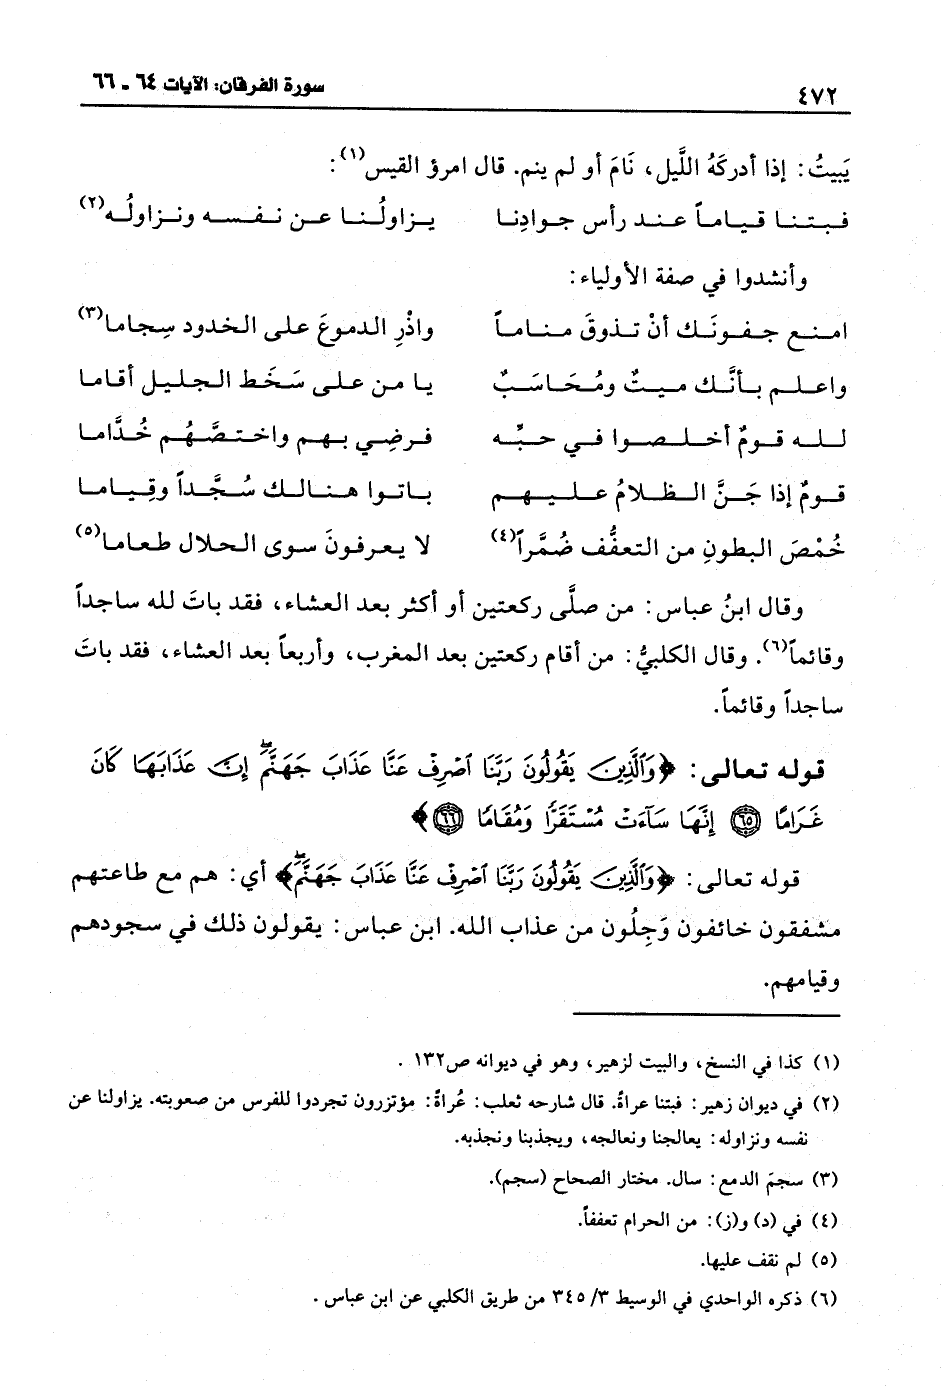 ٤٧٢ سورة الفرقان: الآيات ٦٤ ـ ٦٦
يَبيتُ: إذا أدركَهُ اللَّيل، نَامَ أو لم ينم. قال امرؤ القيس(١):
فـبـتـنـا قـيـامـاً عـنـد رأس جـوادِنـا يـزاولُـنـا عـن نـفـسـه ونـزاولُـه(٢)
وأنشدوا في صفة الأولياء:
امـنـع جـفـونَـك أنْ تـذوقَ مـنـامـاً واذْرِ الدموعَ على الخدود سِجاما(٣)
واعلـم بـأنَّـك مـيـتٌ ومُـحَـاسَـبٌ يـا مـن عـلـى سَخَط الجليل أقاما
لـلـه قـومٌ أخـلـصـوا فـي حبِّـه فـرضِي بـهـم واخـتـصَّـهُـم خُدَّاما
قـومٌ إذا جَـنَّ الـظـلامُ عـلـيـهـم بـاتـوا هـنـالـك سُـجَّـداً وقِـيـامـا
خُمْصَ البطونِ من التعفُّف ضُمَّراً(٤) لا يـعـرفـونَ سـوى الحلال طعاما(٥)
وقال ابنُ عباس: من صلَّى ركعتين أو أكثر بعد العشاء، فقد باتَ لله ساجداً
وقائماً(٦). وقال الكلبيُّ: من أقام ركعتين بعد المغرب، وأربعاً بعد العشاء، فقد باتَ
ساجداً وقائماً.
قوله تعالى: ﴿وَٱلَّذِينَ يَقُولُونَ رَبَّنَا ٱصْرِفْ عَنَّا عَذَابَ جَهَنَّمَۖ إِنَّ عَذَابَهَا كَانَ
غَرَامًا ٦٥ إِنَّهَا سَآءَتْ مُسْتَقَرًّا وَمُقَامًا ٦٦﴾
قوله تعالى: ﴿وَٱلَّذِينَ يَقُولُونَ رَبَّنَا ٱصْرِفْ عَنَّا عَذَابَ جَهَنَّمَۖ﴾ أي: هم مع طاعتهم
مشفقون خائفون وَجِلُون من عذاب الله. ابن عباس: يقولون ذلك في سجودهم
وقيامهم.
(١) كذا في النسخ، والبيت لزهير، وهو في ديوانه ص١٣٢ .
(٢) في ديوان زهير: فبتنا عراةً. قال شارحه ثعلب: عُراةً: مؤتزرون تجردوا للفرس من صعوبته. يزاولنا عن
نفسه ونزاوله: يعالجنا ونعالجه، ويجذبنا ونجذبه.
(٣) سجمَ الدمع: سال. مختار الصحاح (سجم).
(٤) في (د) و(ز): من الحرام تعففاً.
(٥) لم نقف عليها.
(٦) ذكره الواحدي في الوسيط ٣/ ٣٤٥ من طريق الكلبي عن ابن عباس .